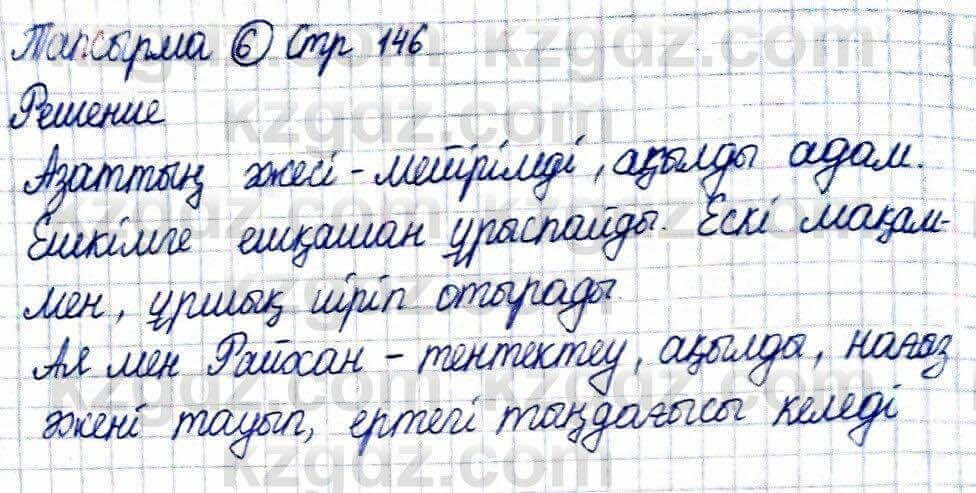 Тапсырма 6 Стр 146
Решение
Азаттың әжесі - мейірімді, ақылды адам.
Ешкімге ешқашан ұрыспайды. Ескі мақам-
мен, ұршық иіріп отырады.
Ал мен Райхан - тентектеу, ақылды, нағыз
әжені тауып, ертегі тыңдағысы келеді
kzgdz.com